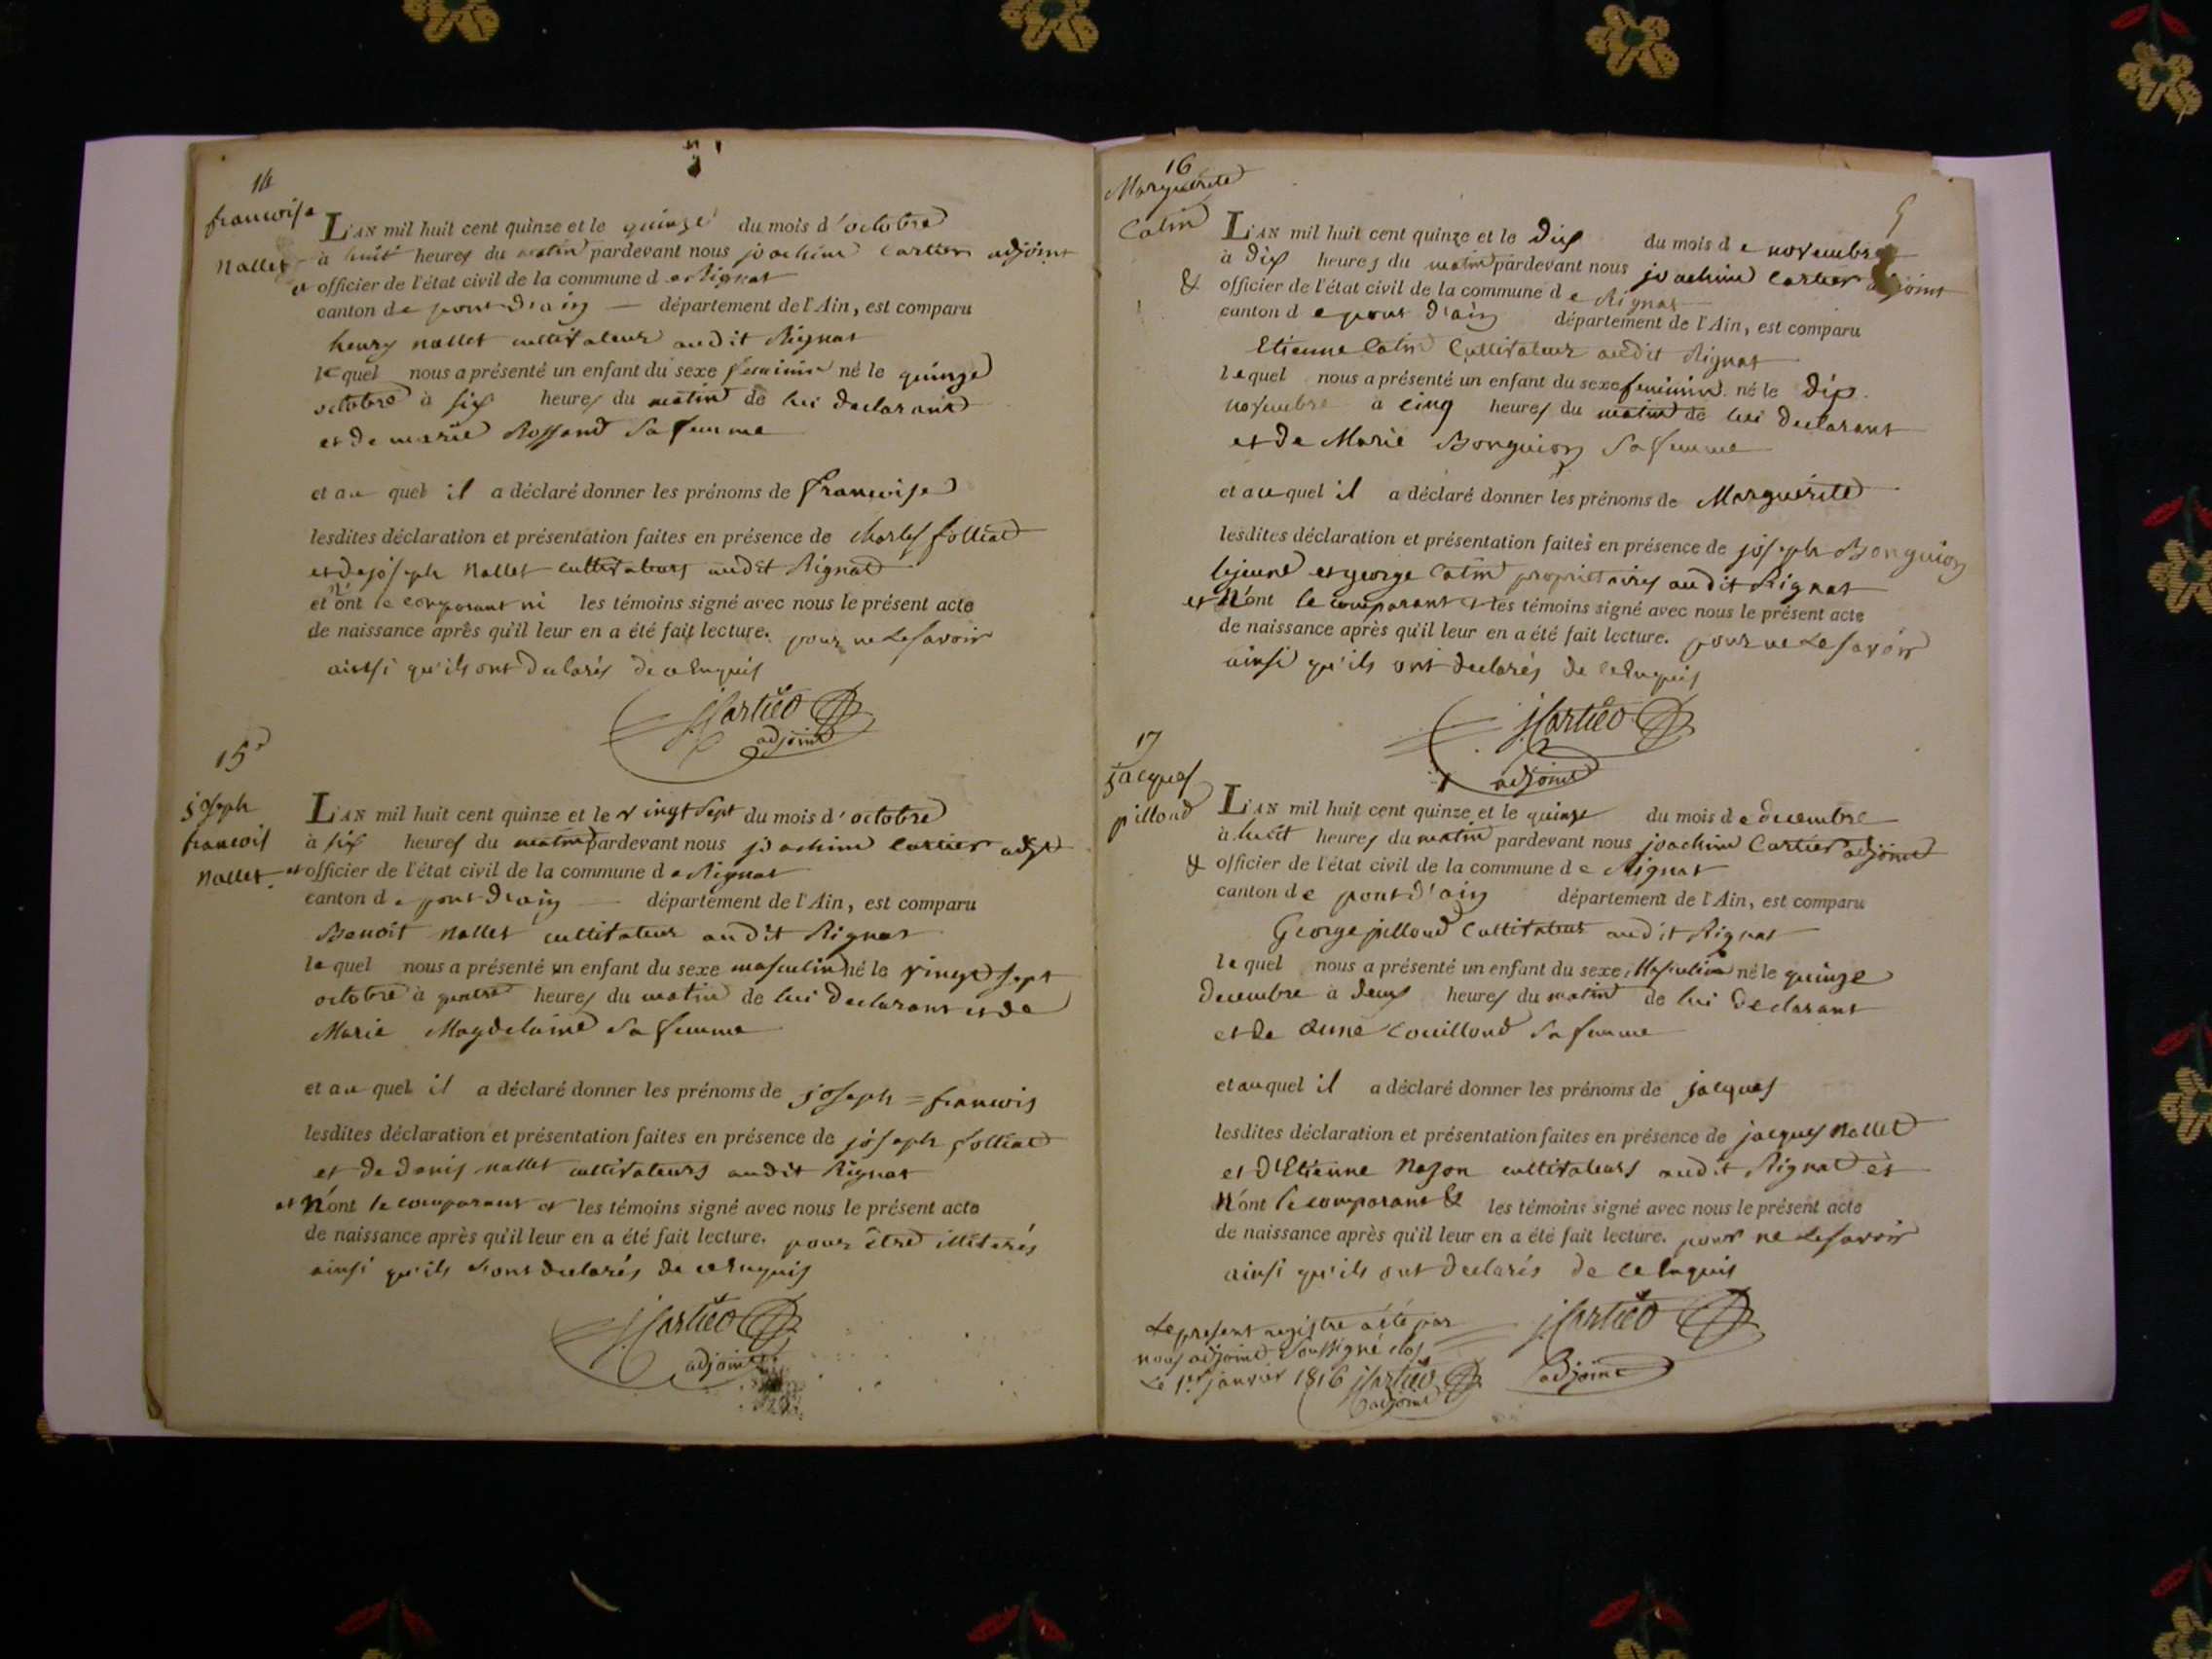 14
francoise
Nallet
L'AN mil huit cent quinze et le quinze du mois d'octobre
à huit heures du matin pardevant nous joachim Cartier adjoint
et officier de l'état civil de la commune de Rignat
canton de pont d'ain — département de l'Ain, est comparu
henry nallet cultivateur audit Rignat
lequel nous a présenté un enfant du sexe feminin né le quinze
octobre à six heures du matin de lui declarant
et de marie Rossand sa femme
et au quel il a déclaré donner les prénoms de francoise
lesdites déclaration et présentation faites en présence de charles folliat
et de joseph Nallet cultivateurs audit Rignat
et n'ont le comparant ni les témoins signé avec nous le présent acte
de naissance après qu'il leur en a été fait lecture. pour ne le savoir
ainsi qu'ils ont declarés de ce Enquis
jCartier
adjoint
15
joseph
francois
nallet
L'AN mil huit cent quinze et le vingt sept du mois d'octobre
à six heures du matin pardevant nous joachim Cartier adjt
et officier de l'état civil de la commune de Rignat
canton de pont d'ain — département de l'Ain, est comparu
Benoit nallet cultivateur audit Rignat
lequel nous a présenté un enfant du sexe masculin né le vingt sept
octobre à quatre heures du matin de lui declarant et de
Marie Magdelaine sa femme
et au quel il a déclaré donner les prénoms de joseph = francois
lesdites déclaration et présentation faites en présence de joseph folliat
et de denis nallet cultivateurs audit Rignat
et N'ont le comparant et les témoins signé avec nous le présent acte
de naissance après qu'il leur en a été fait lecture. pour être illiterés
ainsi qu'ils l'ont declarés de ce Enquis
jCartier
adjoint
16
Marguerite
Catin
L'AN mil huit cent quinze et le dix du mois de novembre
à dix heures du matin pardevant nous joachim Cartier adjoint
& officier de l'état civil de la commune de Rignat
canton de pont d'ain département de l'Ain, est comparu
Etienne Catin Cultivateur audit Rignat
lequel nous a présenté un enfant du sexe feminin né le dix
novembre à cinq heures du matin de lui declarant
et de Marie Bonguion sa femme
et auquel il a déclaré donner les prénoms de Marguerite
lesdites déclaration et présentation faites en présence de joseph Bonguion
lejeune et george Catin proprietaires audit Rignat
et N'ont le comparant & les témoins signé avec nous le présent acte
de naissance après qu'il leur en a été fait lecture. pour ne le savoir
ainsi qu'ils ont declarés de ce Enquis
jCartier
adjoint
17
jacques
pillond
L'AN mil huit cent quinze et le quinze du mois de decembre
à huit heures du matin pardevant nous joachim Cartier adjoint
& officier de l'état civil de la commune de Rignat
canton de pont d'ain département de l'Ain, est comparu
George pillond Cultivateur audit Rignat
lequel nous a présenté un enfant du sexe Masculin né le quinze
decembre à deux heures du matin de lui declarant
et de anne Couillond sa femme
et auquel il a déclaré donner les prénoms de jacques
lesdites déclaration et présentation faites en présence de jacques Nallet
et d'Etienne Nazon cultivateurs audit Rignat et
N'ont le comparant & les témoins signé avec nous le présent acte
de naissance après qu'il leur en a été fait lecture. pour ne le savoir
ainsi qu'ils ont declarés de ce Enquis
jCartier
adjoint
Le present registre a été par
nous adjoint soussigné clos
Le 1er janvier 1816 jCartier
adjoint